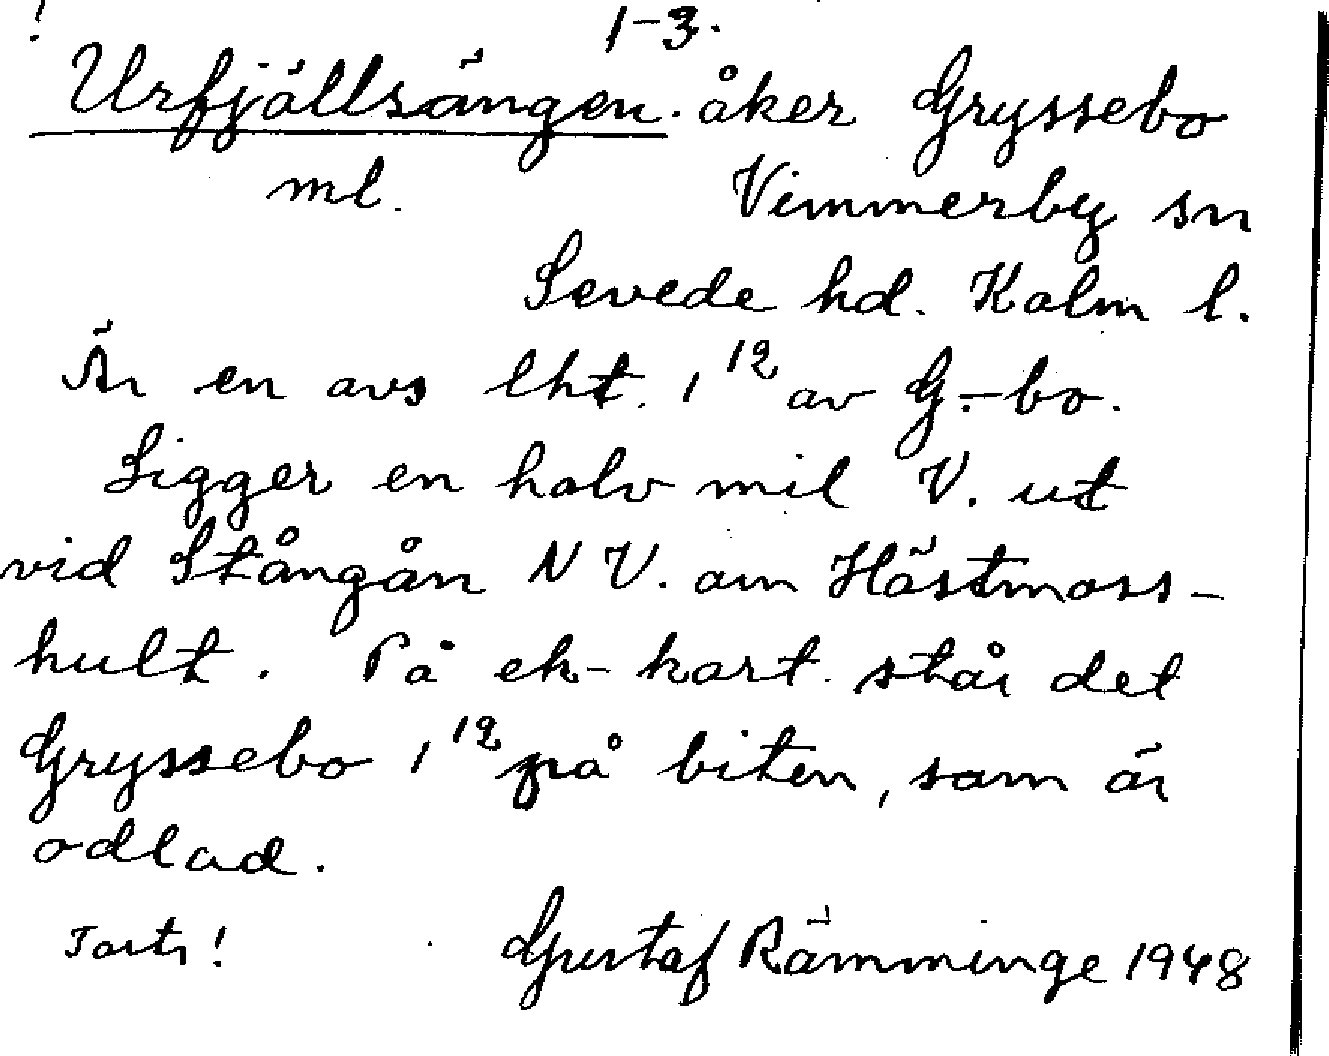 !
1-3.
Urfjällsängen. åker Gryssebo
ml. Vimmerby sn
Sevede hd. Kalm l.
Är en avs lht. 1¹² av G.-bo.
Ligger en halv mil V. ut
vid Stångån NV. om Hästmoss-
hult. På ek-kart. står det
Gryssebo 1¹² på biten, som är
odlad.
Forts! Gustaf Rämminge 1948